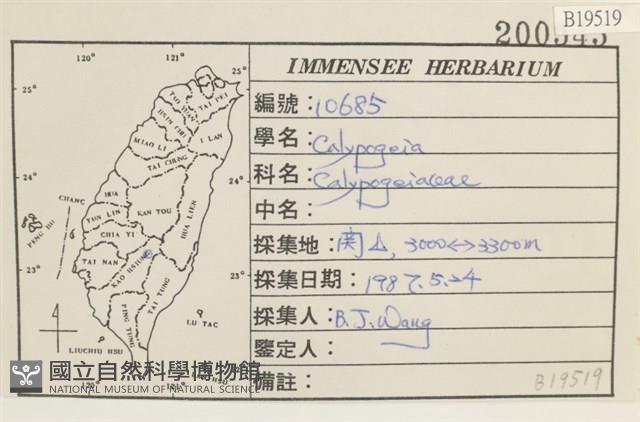 B19519
IMMENSEE HERBARIUM
編號：10685
學名：Calypogeia
科名：Calypogeiaceae
中名：
採集地：関山, 3000<->3300m
採集日期：1987.5.24
採集人：B.J.Wang
鑒定人：
備註：
B19519
120°
121°
25°
25°
TAO YUAN
TAI PEI
HSIN CHU
I LAN
MIAO LI
TAI CHUNG
24°
24°
CHANG HUA
YUN LIN
NAN TOU
HUA LIEN
PENG HU
CHIA YI
TAI NAN
KAO HSIUNG
23°
23°
TAI TUNG
PING TUNG
LU TAO
LIUCHIU HSU
國立自然科學博物館
NATIONAL MUSEUM OF NATURAL SCIENCE
120°
121°